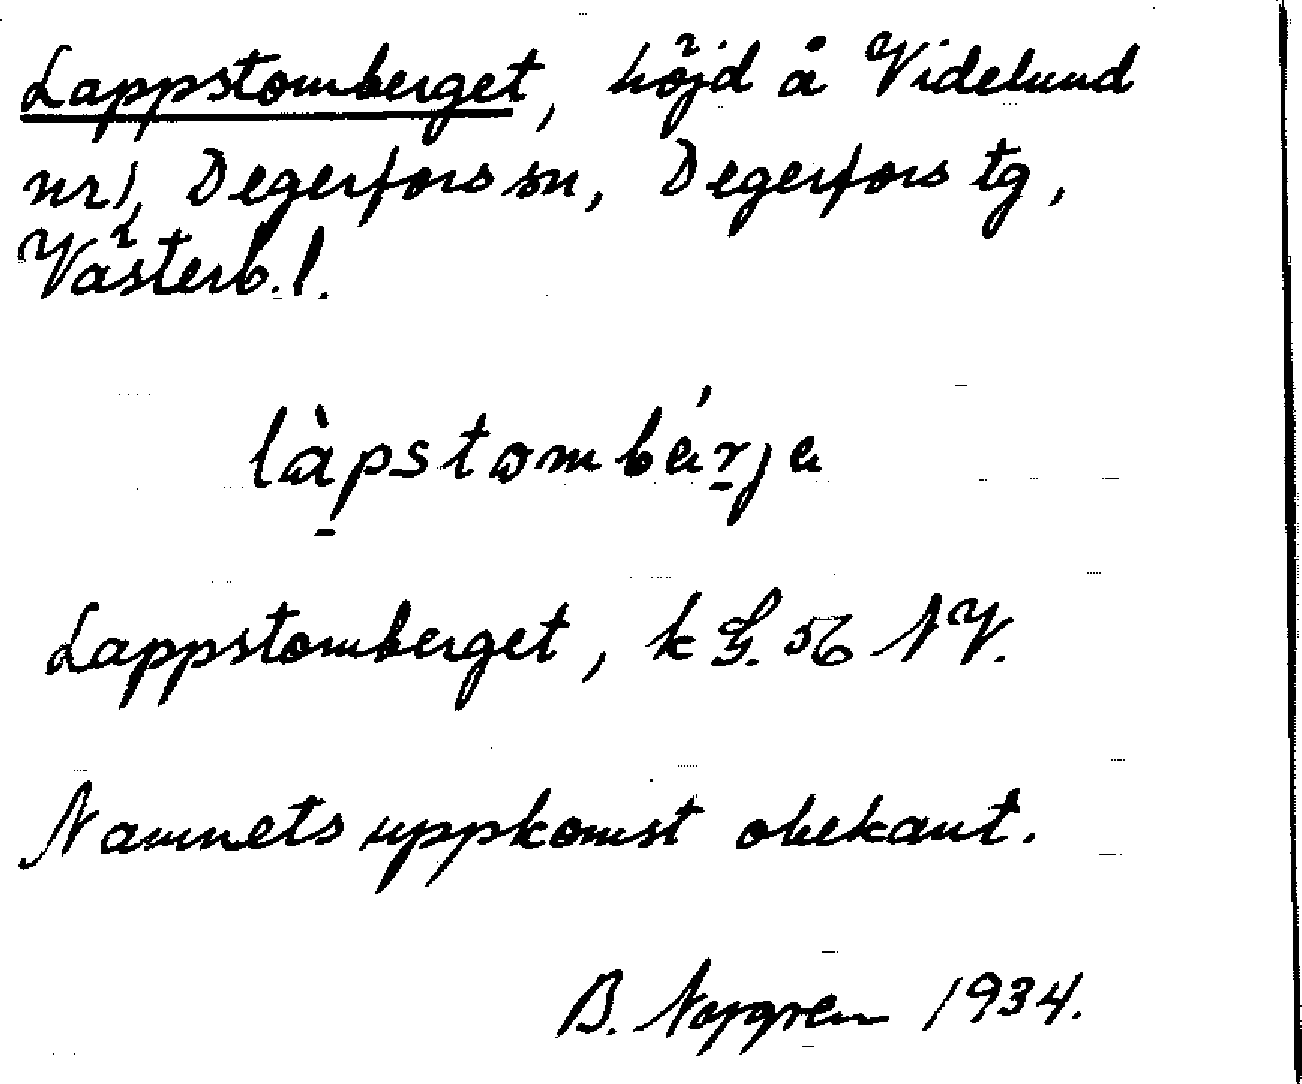 Lappstomberget, höjd å Videlund
nr 1, Degerfors sn, Degerfors tg,
Västerb. l.
làpstombárja
Lappstomberget, k G. 56 NV.
Namnets uppkomst obekant.
B. 1934.